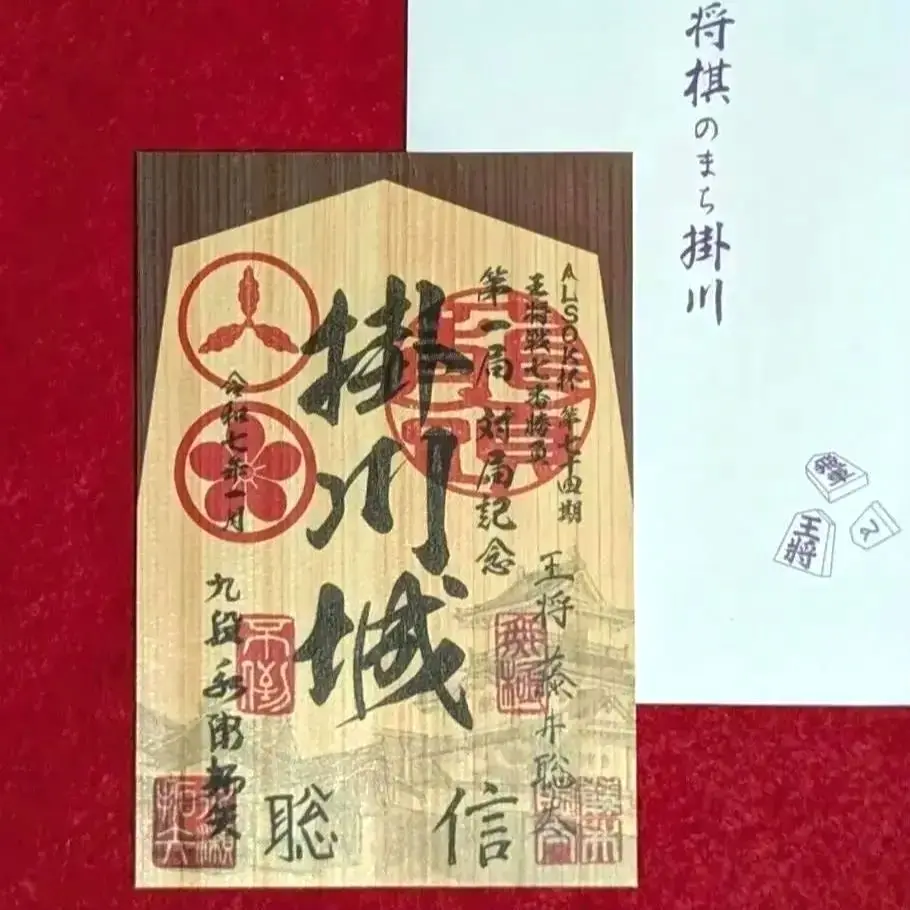 将棋のまち掛川
飛車
王将
ALSOK杯第七十四期
王将戦七番勝負
第一局 対局記念
掛川城
令和七年一月
王将 藤井聡太
九段 永瀬拓矢
不倒
無極
信
聡